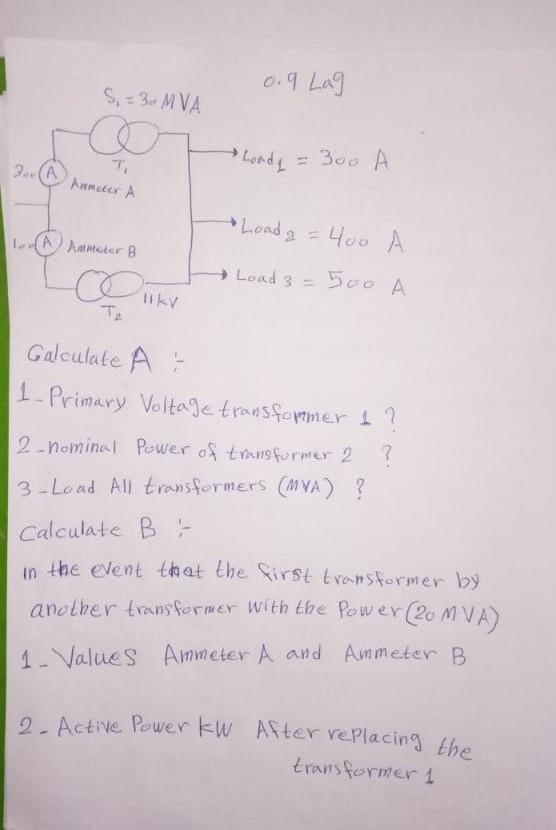 0.9 Lag
S₁ = 30 MVA
T₁
Load 1 = 300 A
300 A
Ammeter A
Load 2 = 400 A
100 A Ammeter B
Load 3 = 500 A
11 kV
T₂
Calculate A :-
1- Primary Voltage transformmer 1 ?
2 - nominal Power of transformer 2 ?
3 - Load All transformers (MVA) ?
Calculate B :-
in the event that the first transformer by
another transformer with the Power (20 MVA)
1 - Values Ammeter A and Ammeter B
2 - Active Power kW After replacing the
transformer 1